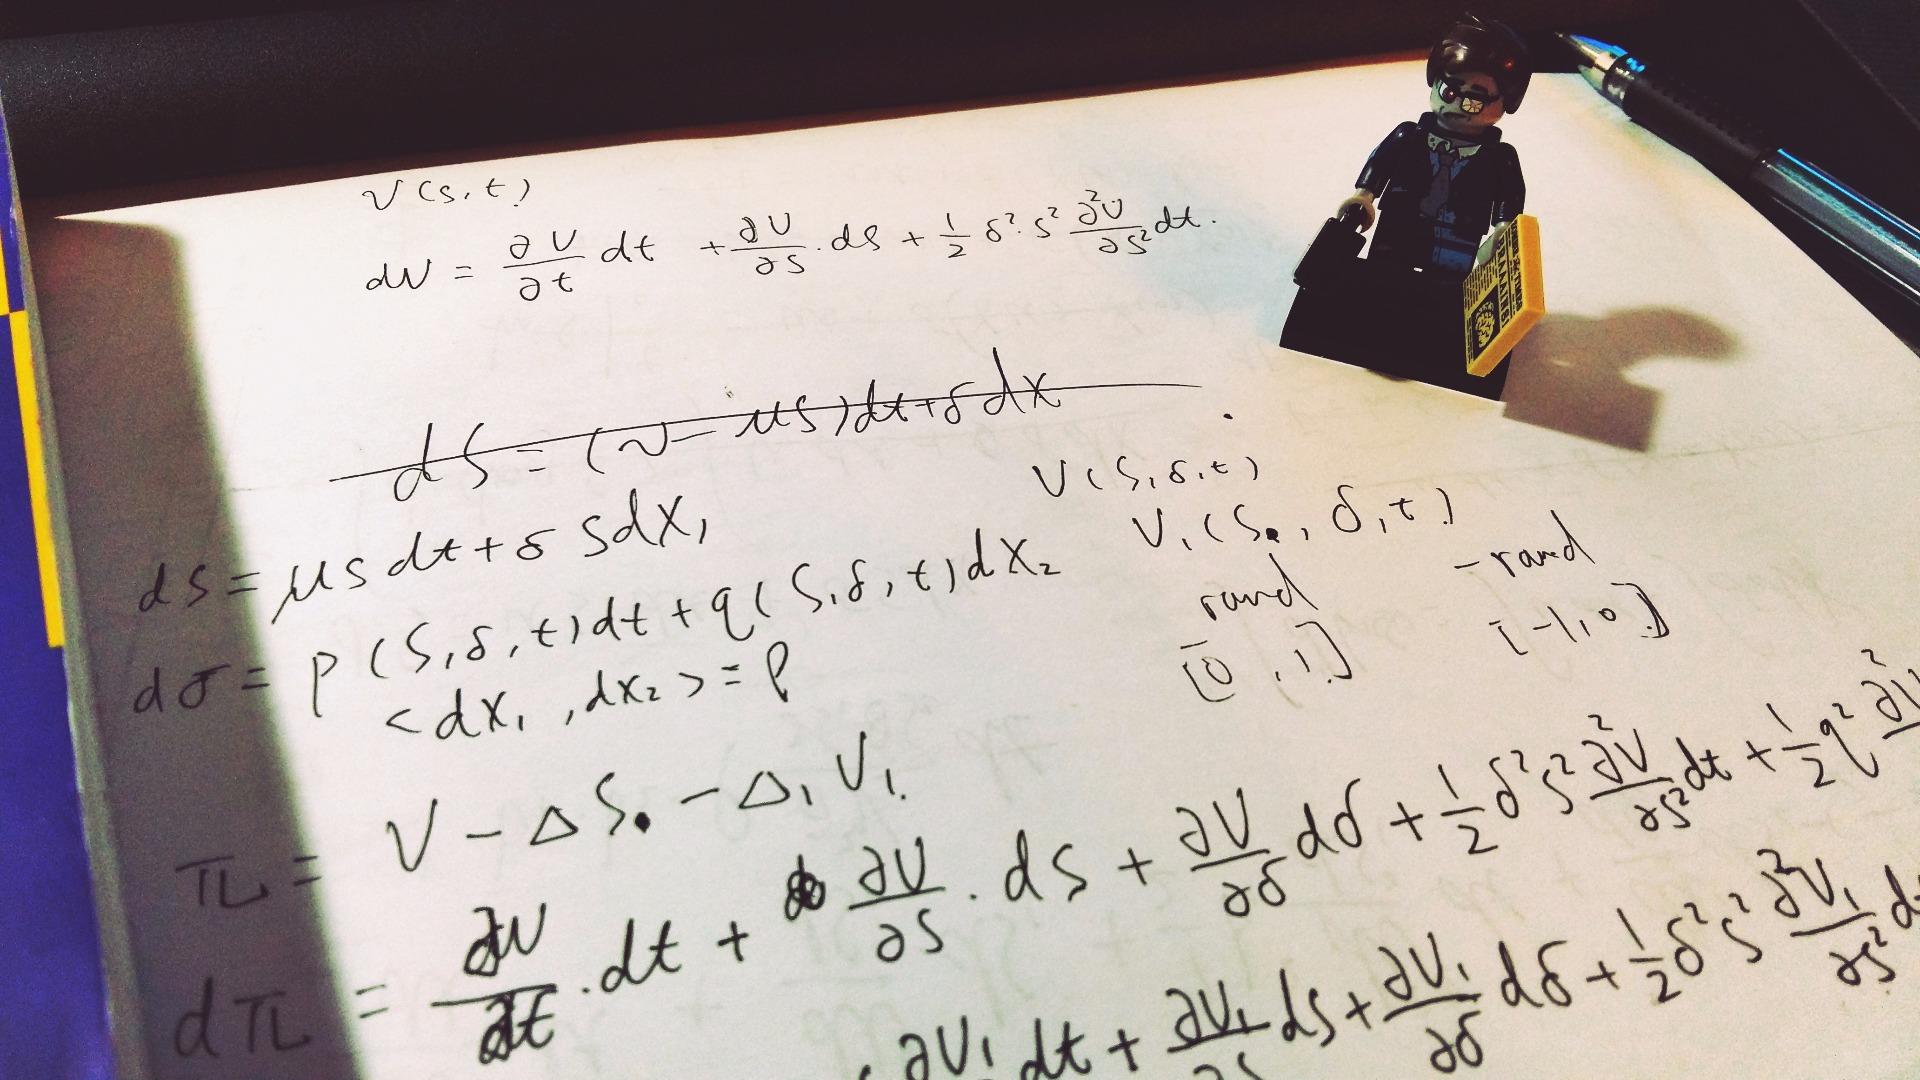 V(S,t)
dV = ∂V/∂t dt + ∂V/∂S · dS + 1/2 δ²·S² ∂²V/∂S² dt.
dS = (ν - μS)dt + δdX
dS = μSdt + δSdX₁
V(S,δ,t)
dσ = p(S,δ,t)dt + q(S,δ,t)dX₂
V₁(S,δ,t)
<dX₁,dX₂> = ρ
rand
-rand
[0,1]
[-1,0]
π = V - ΔS - Δ₁V₁.
dπ = ∂V/∂t · dt + ∂V/∂S · dS + ∂V/∂δ dδ + 1/2 δ²S² ∂²V/∂S² dt + 1/2 q² ∂²V
∂V₁ dt + ∂V₁/∂S dS + ∂V₁/∂δ dδ + 1/2 δ²S² ∂²V₁/∂S² d